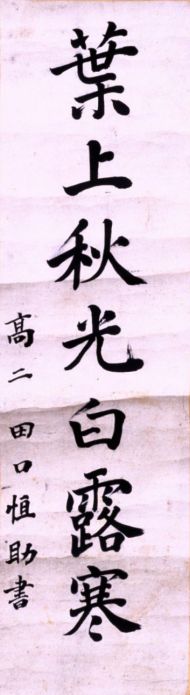 葉上秋光白露寒
高二 田口恒助書